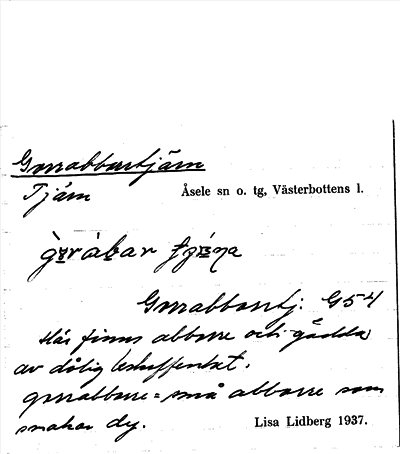 Gorrabborrtjärn
Tjärn
Åsele sn o. tg, Västerbottens l.
Gorrabborrtj. G54
Här finns abborre och gädda
av dålig beskaffenhet.
gorrabborre = små abborre som
smakar dy.
Lisa Lidberg 1937.